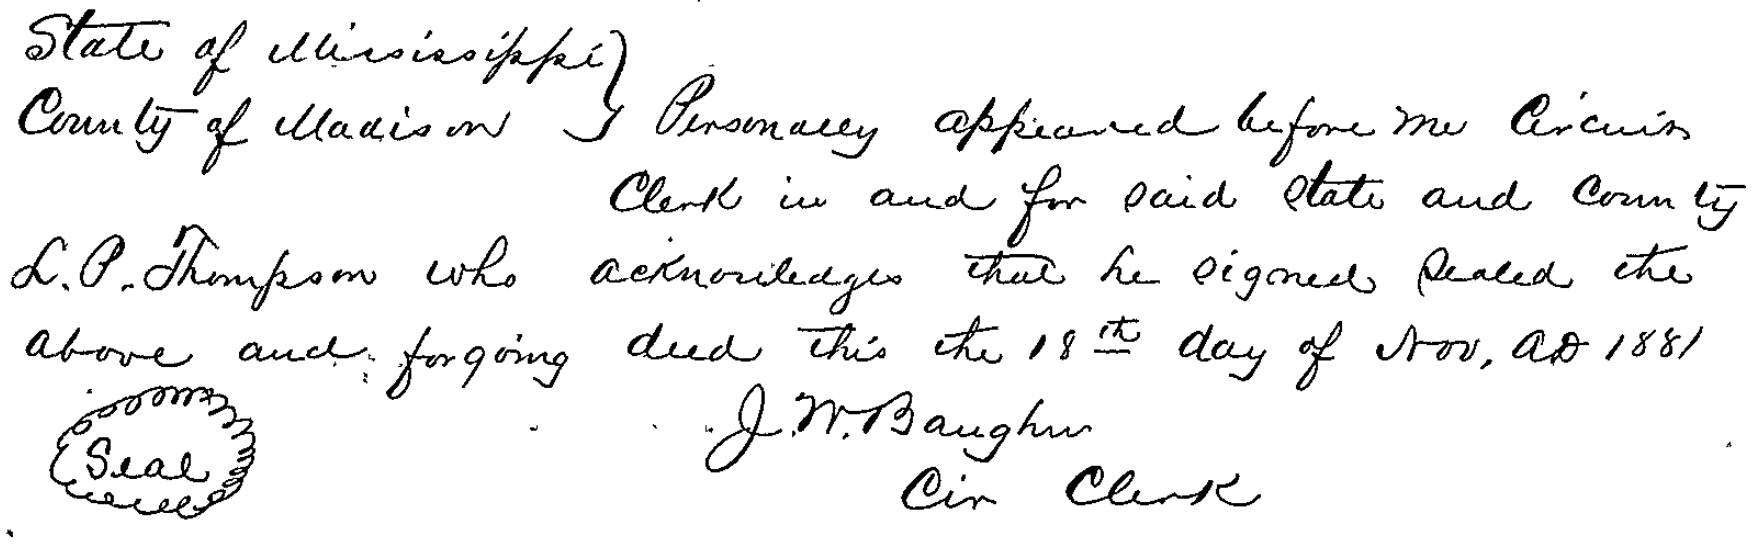 State of Mississippi }
County of Madison } Personally appeared before me Circuit
Clerk in and for said State and County
L. P. Thompson who acknowledges that he signed sealed the
above and forgoing deed this the 18th day of Nov, AD 1881
J. W. Baughn
Seal
Cir Clerk